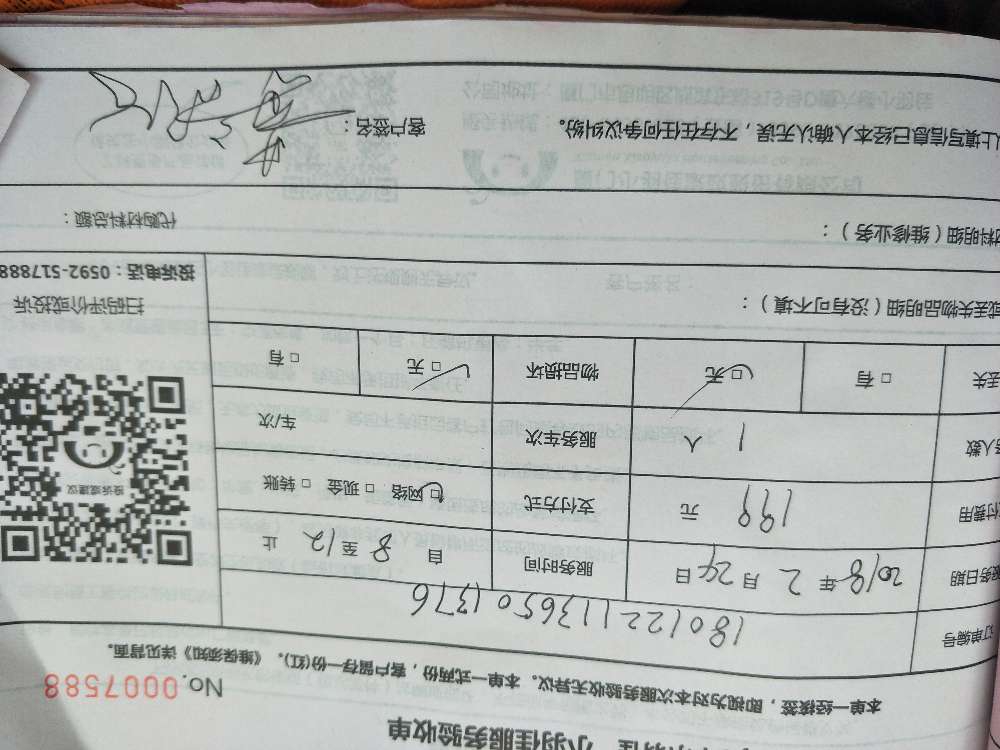 小羽佳服务验收单
本单一经核签，即视为对本次服务验收无异议。本单一式两份，客户留存一份(红)。《维保须知》详见背面。
No. 0007588
订单编号 1801221136501376
服务日期 2018年2月24日 服务时间 自8至12止
付费用 199元 支付方式 □网络 □现金 □转账
务人数 1人 服务车次 车/次
丢失 □有 □无 物品损坏 □无 □有
或丢失物品明细（没有可不填）：
扫码评价或投诉
投诉电话：0592-517888
材料明细（维修业务）：
代购材料总额：
上填写信息已经本人确认无误，不存在任何争议纠纷。
客户签名：
投诉或建议